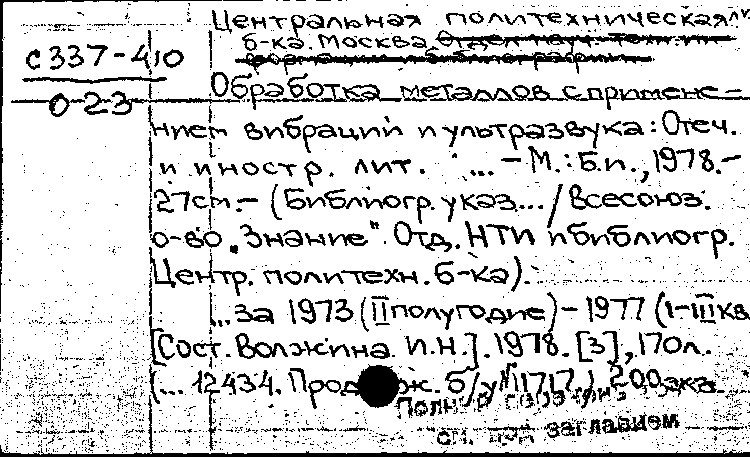 Центральная политехническая
б-ка. Москва.
С337-410
0-23
Обработка металлов с примене-
нием вибраций и ультразвука: Отеч.
и иностр. лит. ... - М.: Б.и., 1978.-
27см.- (Библиогр. указ... / Всесоюз.
о-во "Знание". Отд. НТИ и библиогр.
Центр. политехн. б-ка).
...за 1973 (II полугодие) - 1977 (I-III кв.
[Сост. Волжина И.Н.]. 1978. [3], 170л.
(... 12434. б/у 1717.) 200экз.
см. под заглавием